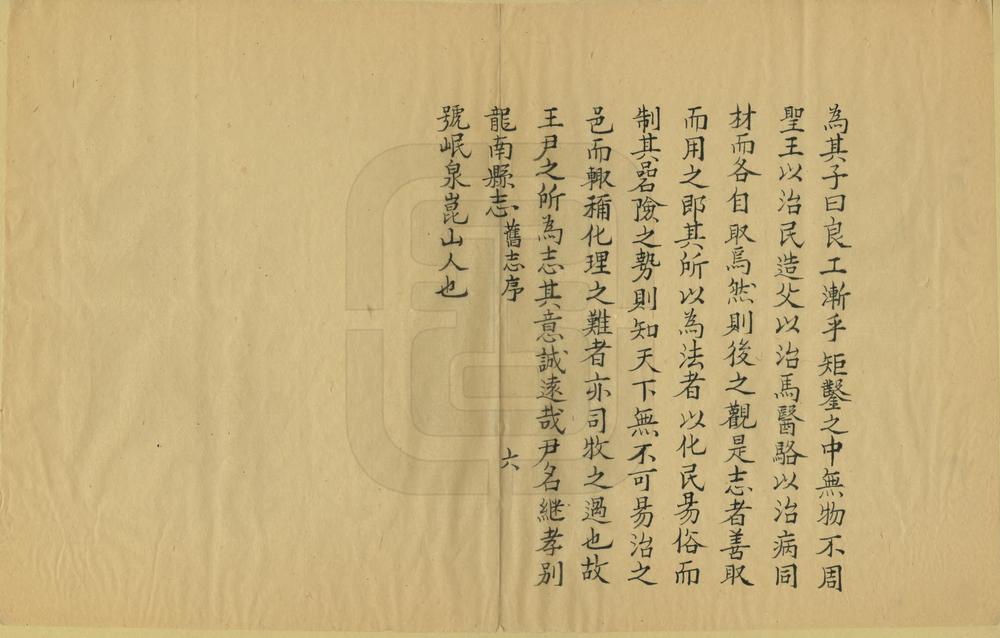 為其子曰良工漸乎矩鑿之中無物不周
聖王以治民造父以治馬醫駱以治病同
材而各自取焉然則後之觀是志者善取
而用之即其所以為法者以化民易俗而
制其嵒險之勢則知天下無不可易治之
邑而輙稱化理之難者亦司牧之過也故
王尹之所為志其意誠遠哉尹名繼孝别
龍南縣志 舊志序 六
號岷泉崑山人也